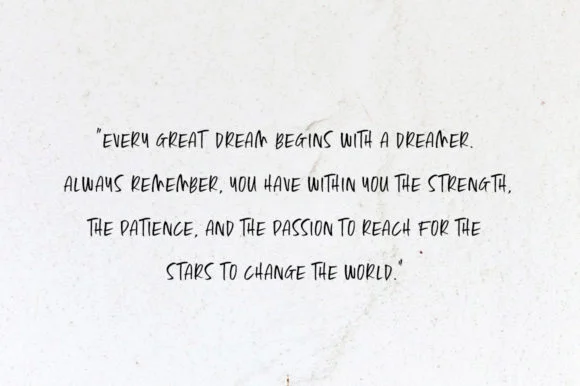 "EVERY GREAT DREAM BEGINS WITH A DREAMER.
ALWAYS REMEMBER, YOU HAVE WITHIN YOU THE STRENGTH,
THE PATIENCE, AND THE PASSION TO REACH FOR THE
STARS TO CHANGE THE WORLD."